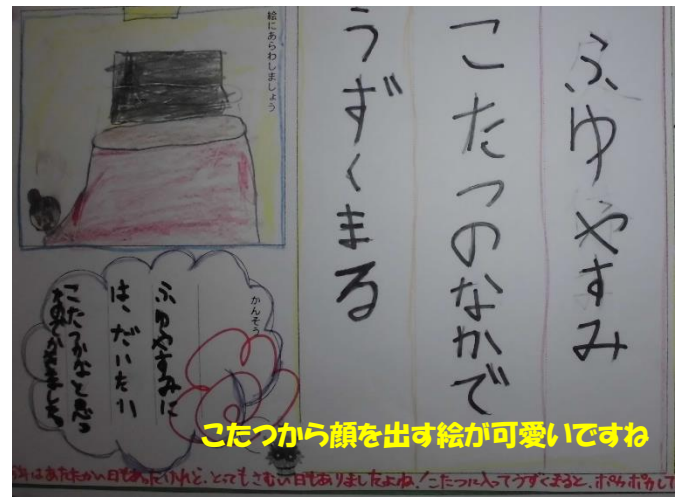 ふゆやすみ
こたつのなかで
うずくまる
絵にあらわしましょう
かんそう
ふゆやすみに
は、だいたい
こたつかなと思う
こたつから顔を出す絵が可愛いですね
はあたたかい日もあったけれど、とってもさむい日もありましたよね!こたつに入ってうずくまると、ポカポカして